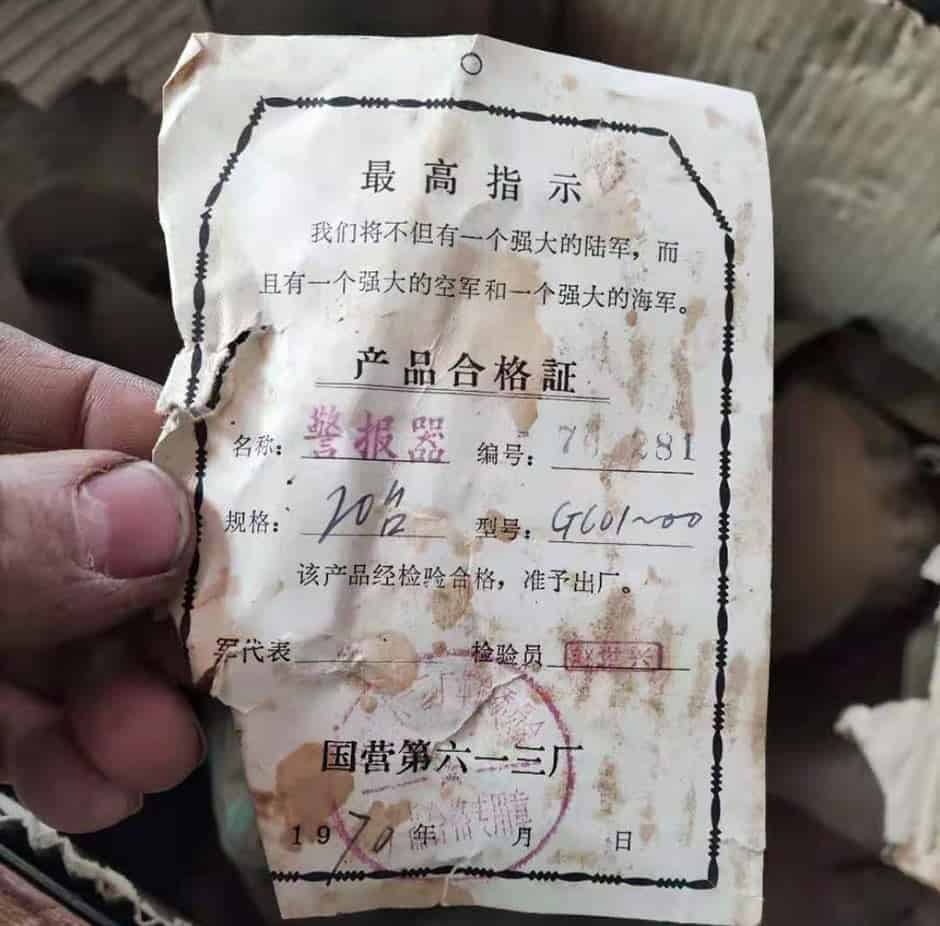 最高指示
我们将不但有一个强大的陆军，而
且有一个强大的空军和一个强大的海军。
产品合格証
名称：警报器 编号：70 281
规格：20台 型号：GL01~00
该产品经检验合格，准予出厂。
军代表 检验员
国营第六一三厂
品合格专用章
1970年 月 日